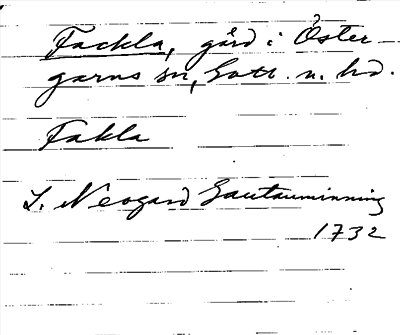 Fackla, gård i Öster-
garns sn, Gotl. n. hd.
Fakla
L. Neogard Gautauminning
1732